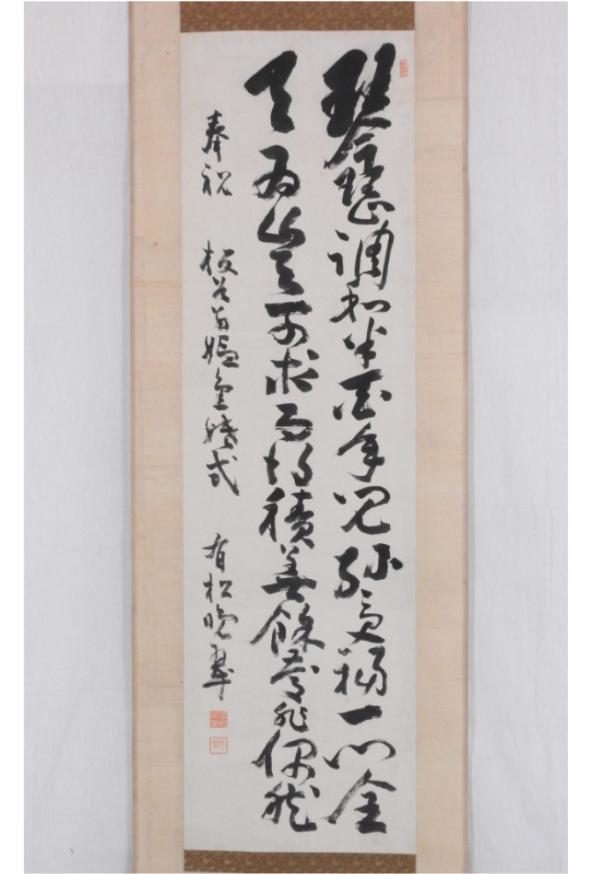 琴瑟調和半百年兒孫受福一門全
天為豈可求而得積善餘慶非偶然
奉祝 板谷翁媼金婚式 有松晩翠